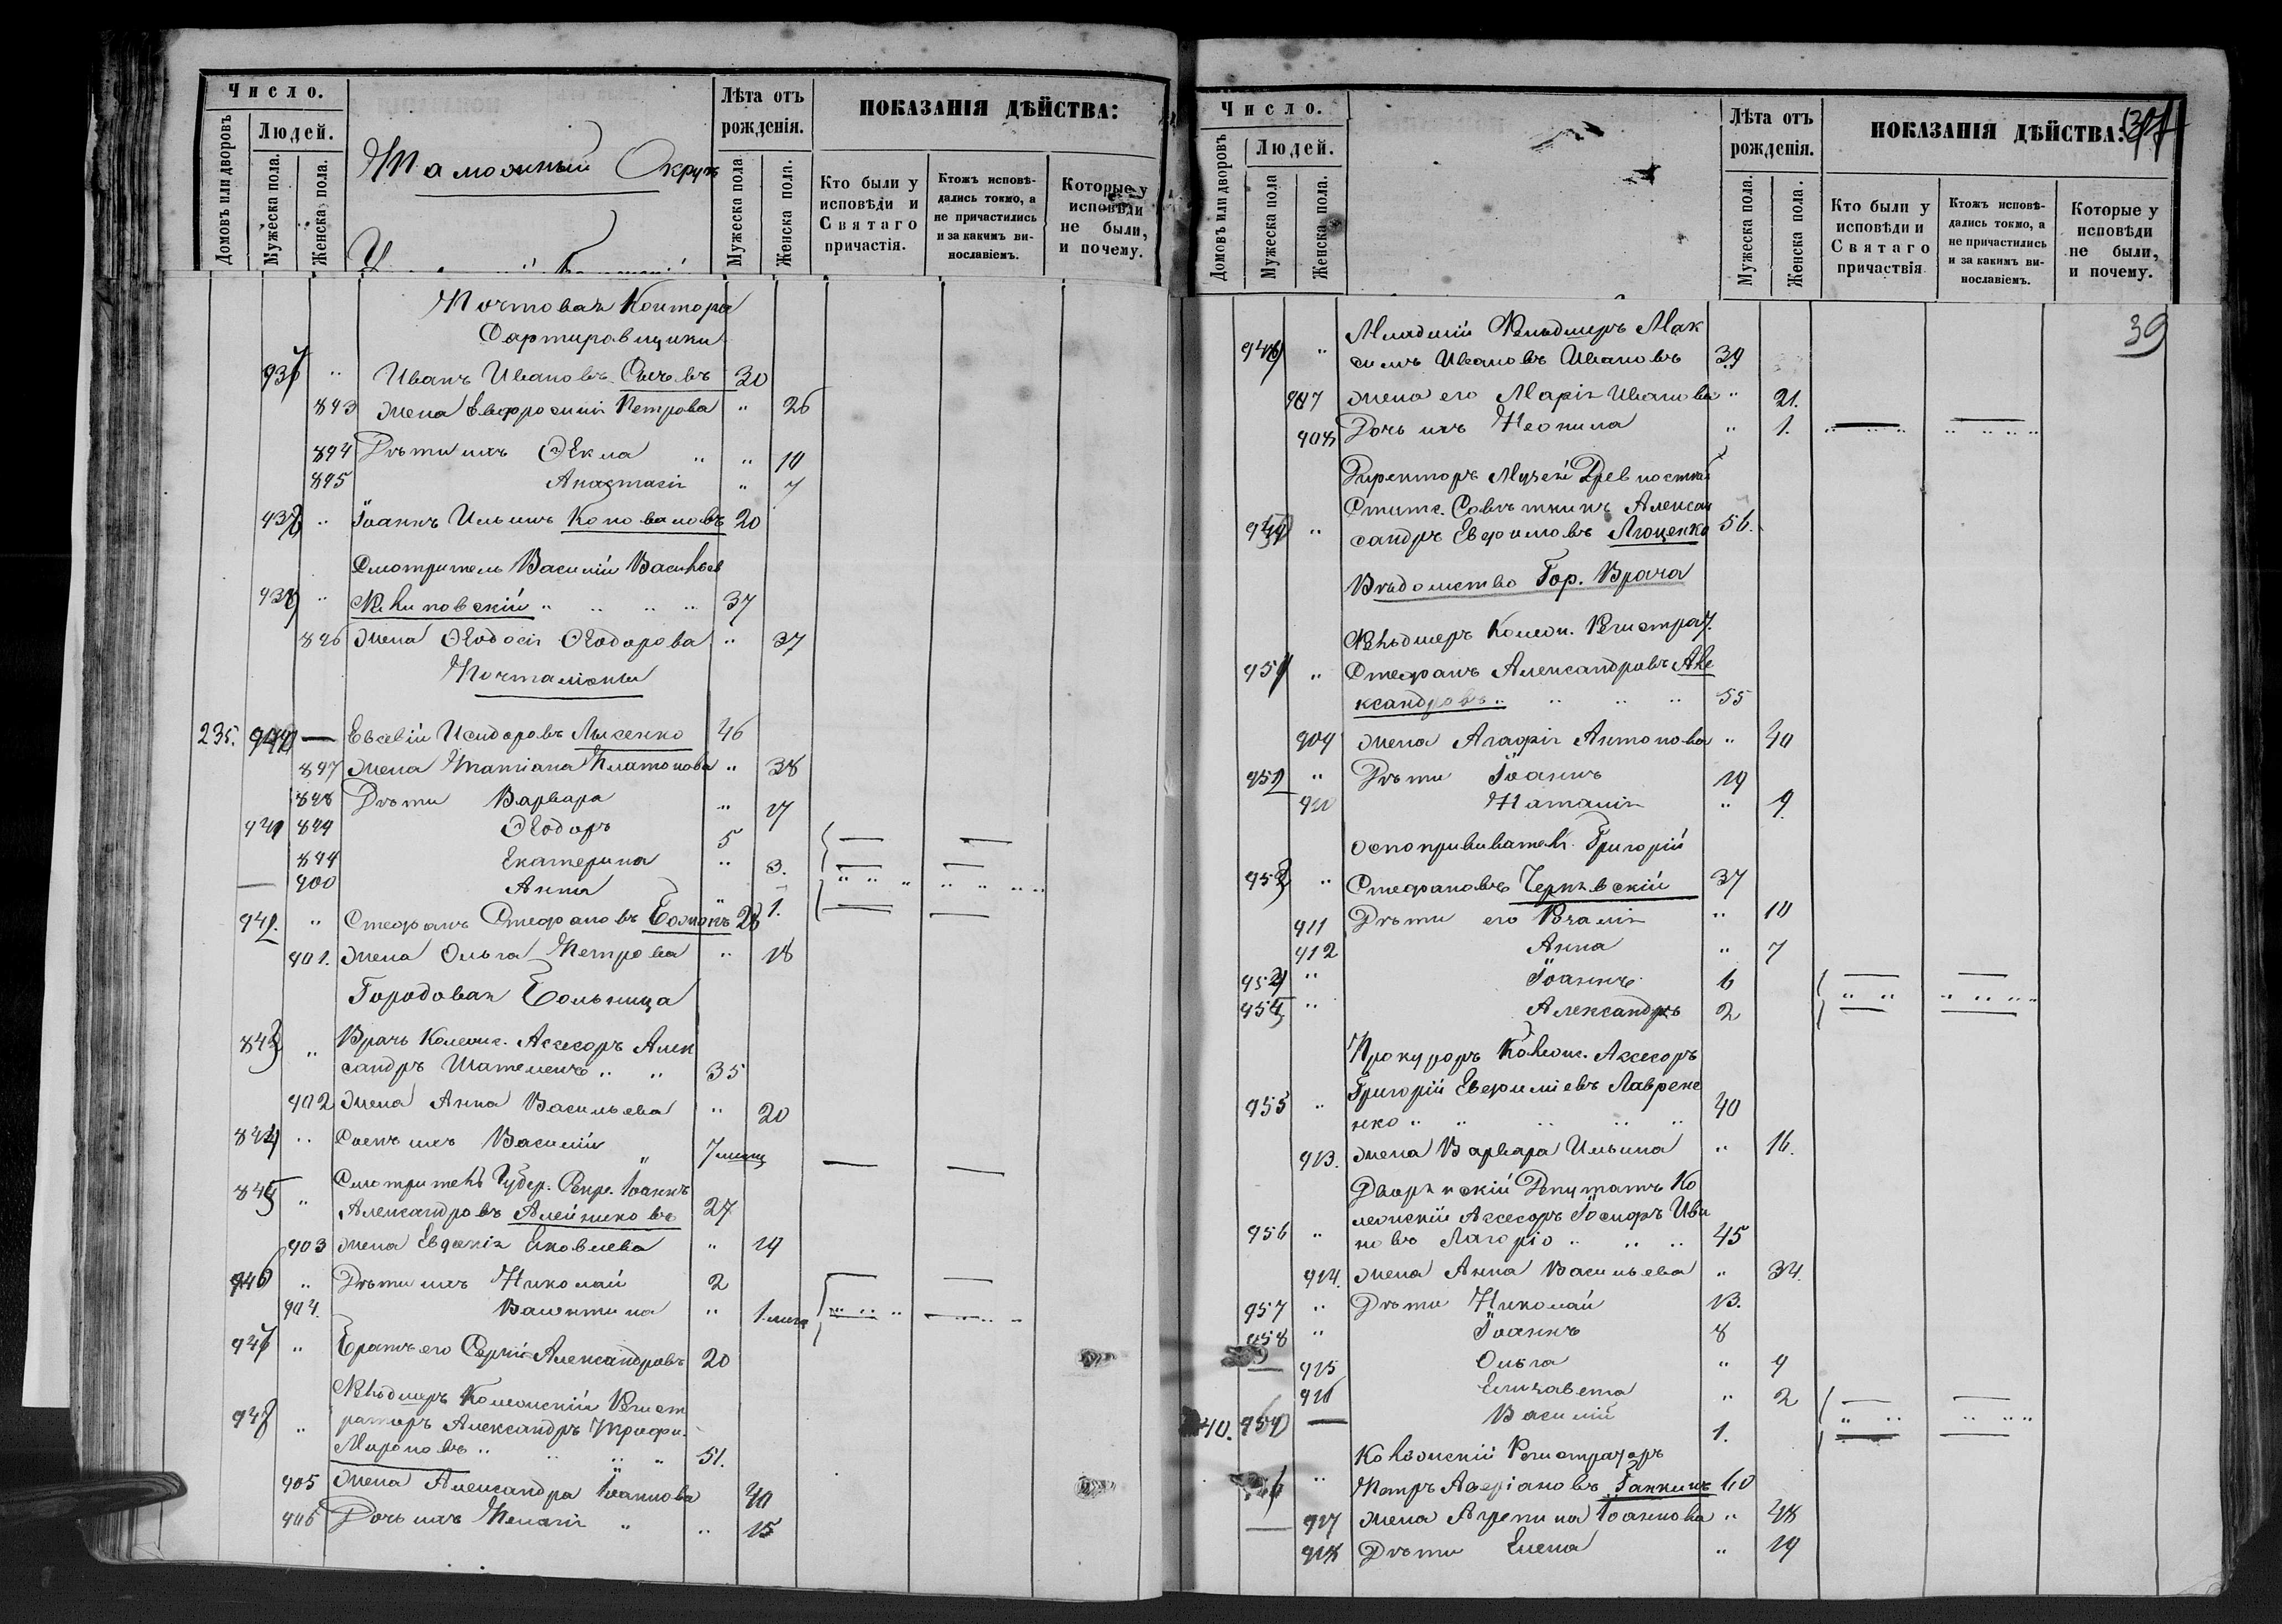 Число.
Людей.
Домовъ или дворовъ
Мужеска пола.
Женска пола.
Таможный Округъ
Лѣта отъ
рожденія.
Мужеска пола
Женска пола.
ПОКАЗАНІЯ ДѢЙСТВА:
Кто были у
исповѣди и
Святаго
причастія.
Ктожъ исповѣ-
дались токмо, а
не причастились
и за какимъ ви-
нословіемъ.
Которые у
исповѣди
не были,
и почему.
Почтовая Контора
Сартировщики
Иванъ Ивановъ 30
893 жена Евфросинія Петрова " 26
894 Дѣти ихъ Ѳекла " " 10
895 Анастасія " 7
" Іоаннъ Ильинъ Коноваловъ 20
Смотритель Василій Васильев
" " " 37
896 жена Ѳеодосія Ѳеодорова " 37
Почталіоны
235. 940 — Евсевій Исидоровъ Лысенко 46
897 жена Татіана Платонова " 38
898 Дѣти Варвара " 17
941 899 Ѳеодоръ 5
899 Екатерина " 3.
— 900 Анна " 1.
942. " Стефанъ Стефановъ 28
901. жена Ольга Петрова " 18
Городовая Больница
843 " Врачъ Колежс. Ассесоръ Алек
сандръ " " 35
902 жена Анна Васильева " 20
844 " Сынъ ихъ Василій " 7 мѣсяц
845 " Смотритель Губер. Секре. Іоаннъ
Александровъ Алейниковъ 27
903 жена Евдокія Яковлева " 19
946 " Дѣти ихъ Николай 2
904. Валентина " 1 мѣся
947 " Братъ его Сергій Александровъ 20
Фельдшеръ Колежскій Регист
948 " раторъ Александръ Трофи.
Мироновъ " " " " 51.
905 жена Александра Іоаннова 40
906 Дочь ихъ Пелагія " " 15
Число.
Людей.
Домовъ или дворовъ
Мужеска пола
Женска пола.
Лѣта отъ
рожденія.
Мужеска пола.
Женска пола.
ПОКАЗАНІЯ ДѢЙСТВА:
Кто были у
исповѣди и
Святаго
причастія
Ктожъ исповѣ-
дались токмо, а
не причастились
и за какимъ ви-
нословіемъ.
Которые у
исповѣди
не были,
и почему.
39
949 " Младшій Фельдшеръ Мак
симъ Ивановъ Ивановъ 39
907 жена его Марія Иванова " 21.
908 Дочь ихъ Неонила " 1.
Директоръ Музея Древностей
Статс. Совѣтникъ Алексан
950 " сандръ Ефимовъ Люценко 56.
Вѣдомство Гор. Врача
Фельдшеръ Колеж. Регистрат.
951 " Стефанъ Александровъ Але
ксандровъ " " " " 55
909 жена Агафія Антонова " 40
952 " Дѣти Іоаннъ 19
910 Наталія " 9.
Оспопрививатель Григорій
953 " Стефановъ Чернявскій 37
911 Дѣти его " 10
912 Анна " 7
954 " Іоаннъ 6
955 " Александръ 2
Прокуроръ Колежс. Ассесоръ
Григорій Евфиміевъ Лаврене
955 " нко " " " " " 40
913. жена Варвара Ильина " 16.
Дворянскій Депутатъ Ко
лежскій Ассесоръ Іосифъ Ива
956 " новъ Лагоріо " " " 45
914. жена Анна Васильева " 34.
957 " Дѣти Николай 13.
958 " Іоаннъ 8
— 915 Ольга " 4
916 Елизавета " 2
240. 959 — Василій 1.
Колежскій Регистраторъ
" Петръ 60
— 917 жена Агрепина Іоаннова " 48
918 Дѣти Елена " 19